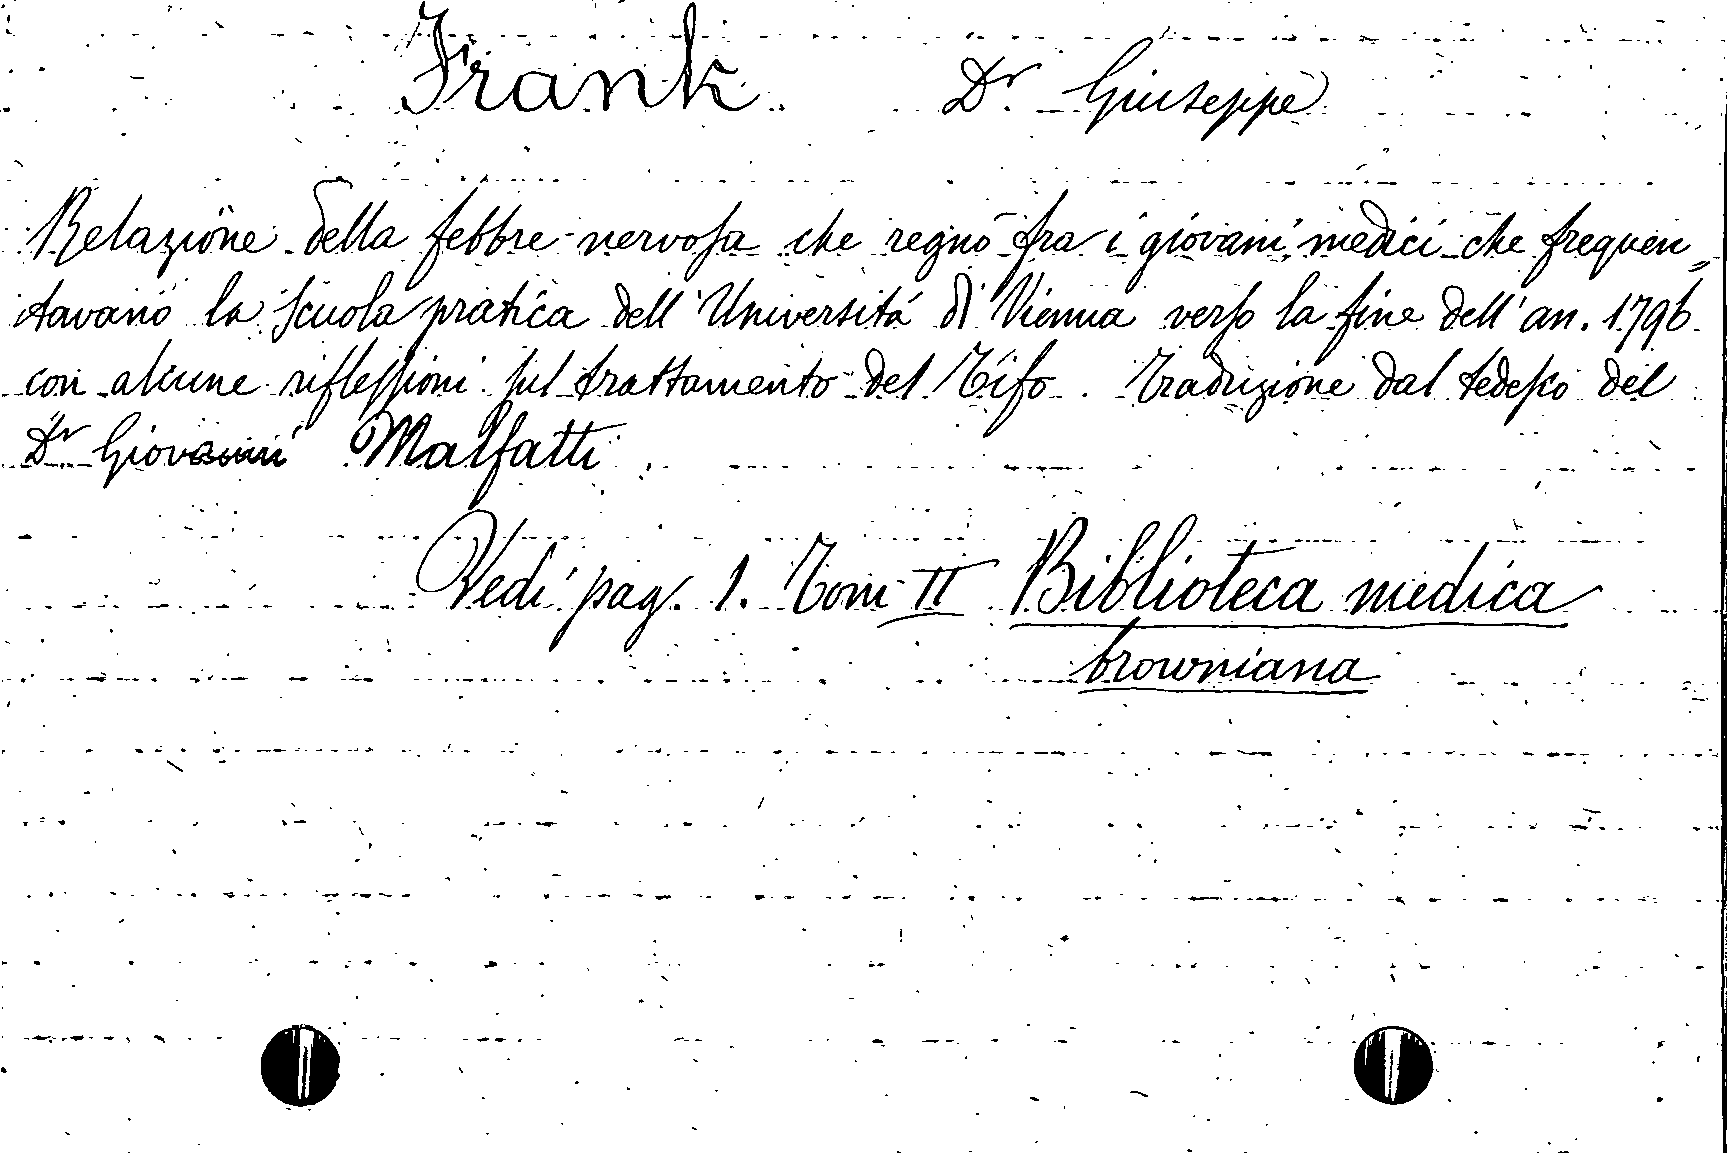 Frank Dr. Giuseppe
Relazione della febbre nervosa che regnò fra i giovani medici che frequen„
tavano la scuola pratica dell'Universitá di Vienna verso la fine dell'an. 1796
con alcune riflessioni sul trattamento del Tifo. Traduzione dal tedesco del
Dr Giovanni Malfatti
Vedi pag. 1. Tom II Biblioteca medica
browniana